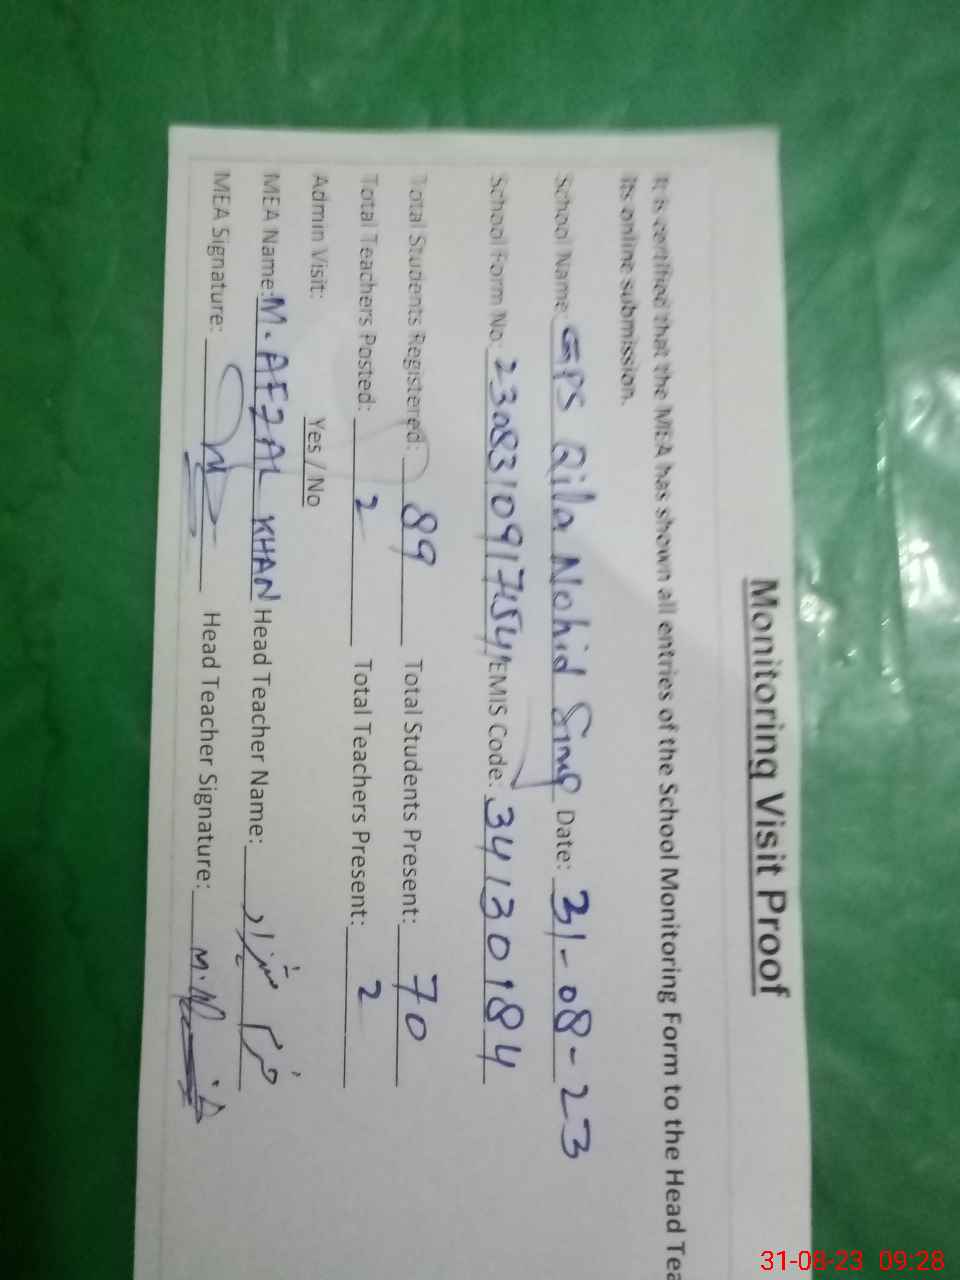 Monitoring Visit Proof
It is certified that the MEA has shown all entries of the School Monitoring Form to the Head Tea
its online submission.
School Name: GPS Qila Nohid Sing Date: 31-08-23
School Form No: 2308310917454 EMIS Code: 34130184
Total Students Registered: 89 Total Students Present: 70
Total Teachers Posted: 2 Total Teachers Present: 2
Admin Visit: Yes / No
MEA Name: M. AFZAL KHAN Head Teacher Name:
MEA Signature: Head Teacher Signature:
31-08-23 09:28